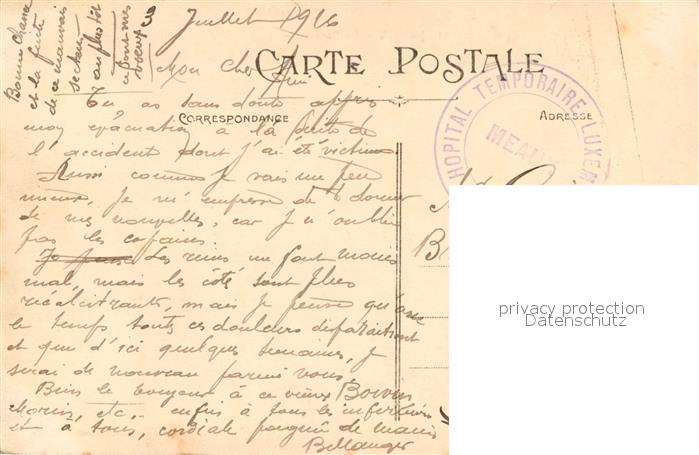 Juillet 1916
Bonne chance
et la fuite
de ce mauvais
secteur
au plus tôt
ce sont mes
voeux
CARTE POSTALE
Mon cher Ami
HOPITAL TEMPORAIRE LUXEM
MEAUX
CORRESPONDANCE
ADRESSE
Tu as sans doute appris
mon évacuation à la suite de
l'accident dont j'ai été victime.
Aussi comme je vais un peu
mieux, je m'empresse de te donner
de mes nouvelles, car je n'oublie
pas les copains.
Les reins me font moins
mal, mais les côtés sont plus
récalcitrants, mais je pense qu'avec
le temps toutes ces douleurs disparaitront
et que d'ici quelques semaines, je
serai de nouveau parmi vous.
Bien le bonjour à ce vieux
Morin, etc., enfin à tous les infirmiers
et à tous, cordiale poignée de mains
Bellanger
privacy protection
Datenschutz